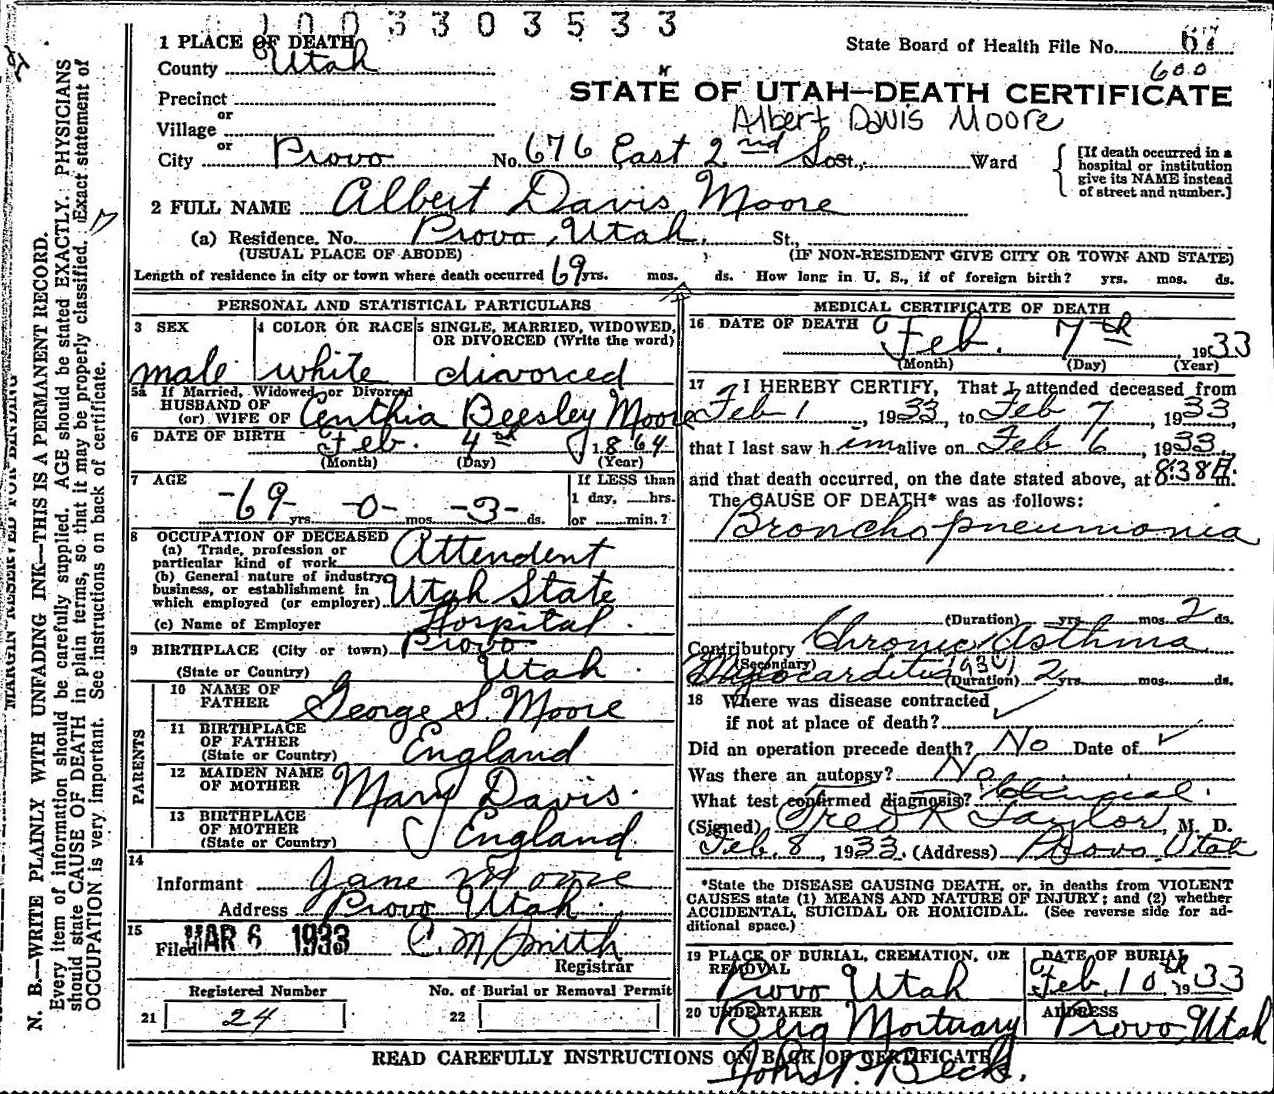 1003303533
1 PLACE OF DEATH
County Utah
State Board of Health File No. 67
600
Precinct
or
Village
or
STATE OF UTAH—DEATH CERTIFICATE
Albert Davis Moore
City Provo No. 676 East 2nd So St., Ward
[If death occurred in a
hospital or institution
give its NAME instead
of street and number.]
2 FULL NAME Albert Davis Moore
(a) Residence. No. Provo, Utah. St.,
(USUAL PLACE OF ABODE) (IF NON-RESIDENT GIVE CITY OR TOWN AND STATE)
Length of residence in city or town where death occurred 69 yrs. mos. ds. How long in U. S., if of foreign birth? yrs. mos. ds.
PERSONAL AND STATISTICAL PARTICULARS
3 SEX 4 COLOR OR RACE 5 SINGLE, MARRIED, WIDOWED,
OR DIVORCED (Write the word)
male white divorced
5a If Married, Widowed or Divorced
HUSBAND OF
(or) WIFE OF Centhia Beesley Moore
6 DATE OF BIRTH Feb. 4th 1864
(Month) (Day) (Year)
7 AGE If LESS than
1 day, hrs.
-69- yrs. -0- mos. -3- ds. or min.?
8 OCCUPATION OF DECEASED
(a) Trade, profession or
particular kind of work Attendent
(b) General nature of industry,
business, or establishment in
which employed (or employer) Utah State
Hospital
(c) Name of Employer
9 BIRTHPLACE (City or town) Provo
(State or Country) Utah
PARENTS
10 NAME OF
FATHER George S. Moore
11 BIRTHPLACE
OF FATHER
(State or Country) England
12 MAIDEN NAME
OF MOTHER Mary Davis.
13 BIRTHPLACE
OF MOTHER
(State or Country) England.
14
Informant Jane Moore
Address Provo Utah.
15
Filed MAR 6 1933 C. M. Smith
Registrar
Registered Number No. of Burial or Removal Permit
21 24 22
MEDICAL CERTIFICATE OF DEATH
16 DATE OF DEATH
Feb. 7th 1933
(Month) (Day) (Year)
17 I HEREBY CERTIFY, That I attended deceased from
Feb 1, 1933 to Feb 7, 1933,
that I last saw him alive on Feb 6, 1933
and that death occurred, on the date stated above, at 8:38 A.m.
The CAUSE OF DEATH* was as follows:
Bronchopneumonia
(Duration) yrs. mos. 2 ds.
Contributory Chronic Asthma
(Secondary)
Myocarditis (930) (Duration) 2 yrs. mos. ds.
18 Where was disease contracted
if not at place of death?
Did an operation precede death? No Date of
Was there an autopsy? No
What test confirmed diagnosis? Clinical.
(Signed) Fred R Taylor, M. D.
Feb. 8, 1933. (Address) Provo, Utah
*State the DISEASE CAUSING DEATH, or, in deaths from VIOLENT
CAUSES state (1) MEANS AND NATURE OF INJURY; and (2) whether
ACCIDENTAL, SUICIDAL OR HOMICIDAL. (See reverse side for ad-
ditional space.)
19 PLACE OF BURIAL, CREMATION, OR
REMOVAL
Provo Utah
DATE OF BURIAL
Feb. 10th, 1933
20 UNDERTAKER
Berg Mortuary
ADDRESS
Provo, Utah
READ CAREFULLY INSTRUCTIONS ON BACK OF CERTIFICATE
John P. Beck.
MARGIN RESERVED FOR BINDING
N. B.—WRITE PLAINLY WITH UNFADING INK—THIS IS A PERMANENT RECORD.
Every item of information should be carefully supplied. AGE should be stated EXACTLY. PHYSICIANS
should state CAUSE OF DEATH in plain terms, so that it may be properly classified. Exact statement of
OCCUPATION is very important. See instructions on back of certificate.